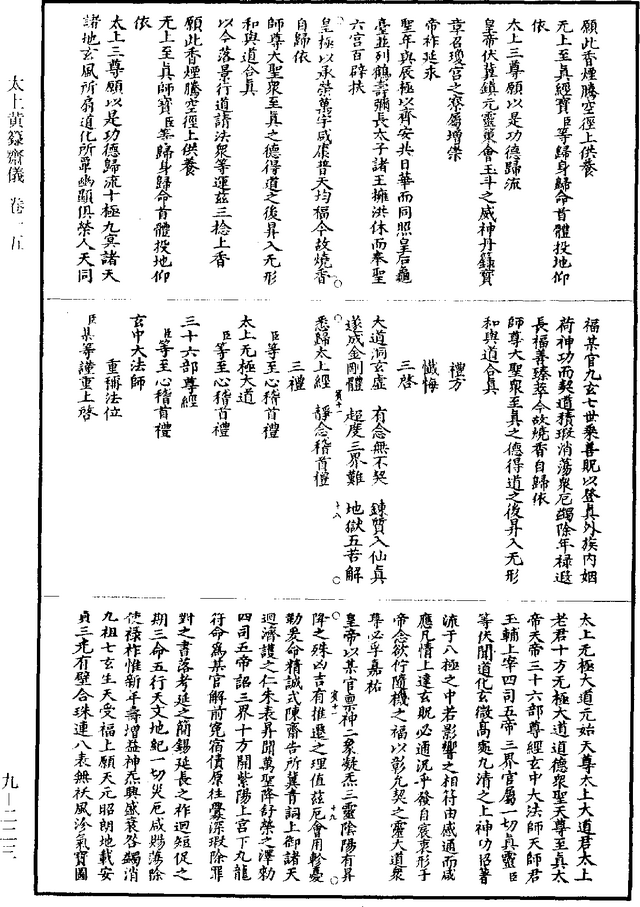 願此香煙騰空徑上供養
无上至真經寶臣等歸身歸命首體投地仰
依
太上三尊願以是功德歸流
皇帝伏冀鎮元靈東會玉斗之威神丹籙寶
章召瓊宮之寮屬增崇
帝祚延永
聖年與辰極以齊安共日華而同照皇后龜
臺並列鶴壽彌長太子諸王擁洪休而奉聖
六宮百辟挾
皇極以承榮萬宇咸康普天均福今故燒香
自歸依
師尊大聖眾至真之德得道之後昇入无形
和與道合真
以今落景行道請法眾等運茲三捻上香
願此香煙騰空徑上供養
无上至真師寶臣等歸身歸命首體投地仰
依
太上三尊願以是功德歸流十極九冥諸天
諸地玄風所扇道化所單幽顯俱榮人天同
福某官九玄七世乘善貺以登真外族內姻
荷神功而契道積瑕消蕩眾厄蠲除年祿遐
長福善臻萃今故燒香自歸依
師尊大聖眾至真之德得道之後昇入无形
和與道合真
禮方
懺悔
三啓
大道洞玄虛 有念無不契 鍊質入仙真
遂成金剛體 超度三界難 地獄五苦解
悉歸太上經 靜念稽首禮
三禮
臣等至心稽首禮
太上无極大道
臣等至心稽首禮
三十六部尊經
臣等至心稽首禮
玄中大法師
重稱法位
臣某等謹重上啓
太上无極大道元始天尊太上大道君太上
老君十方无極大道道德眾聖天尊至真太
帝天帝三十六部尊經玄中大法師天師君
玉輔上宰四司五帝三界官屬一切真靈臣
等伏聞道化玄微高奭九清之上神功招著
流于八極之中若影響之相符由感通而咸
應凡情上達玄貺必通況乎發自宸衷形于
帝念欲佇隨機之福以彰允契之靈大道眾
尊必孚嘉祐
皇帝以某官稟神二象凝炁三靈陰陽有昇
降之殊凶吉有推遷之理值茲厄會用軫憂
勤爰命精誠式陳齋告所冀青詞上御諸天
迴濟護之仁朱表昇聞萬聖降舒榮之澤勑
四司五帝詔三界十方開紫陽上宮下九龍
符命為某官解前寃宿債原往舋深瑕除罪
對之書落考延之簡錫延長之祚迴短促之
期三命五行天文地紀一切災厄咸賜蕩除
使祿祚惟新年壽增益神炁興盛衰咎蠲消
九祖七玄生天受福上願天元昭朗地載安
貞三光有璧合珠連八表無祅風沴氣寶圖
太上黃籙齋儀 卷一五
九—二二三